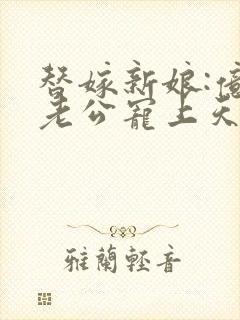 替嫁新娘:億
老公寵上天
雅蘭輕音